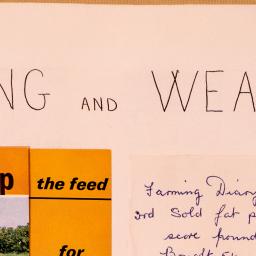 NG AND WEA
p the feed
for
Farming Diary
3rd Sold fat p
score pound